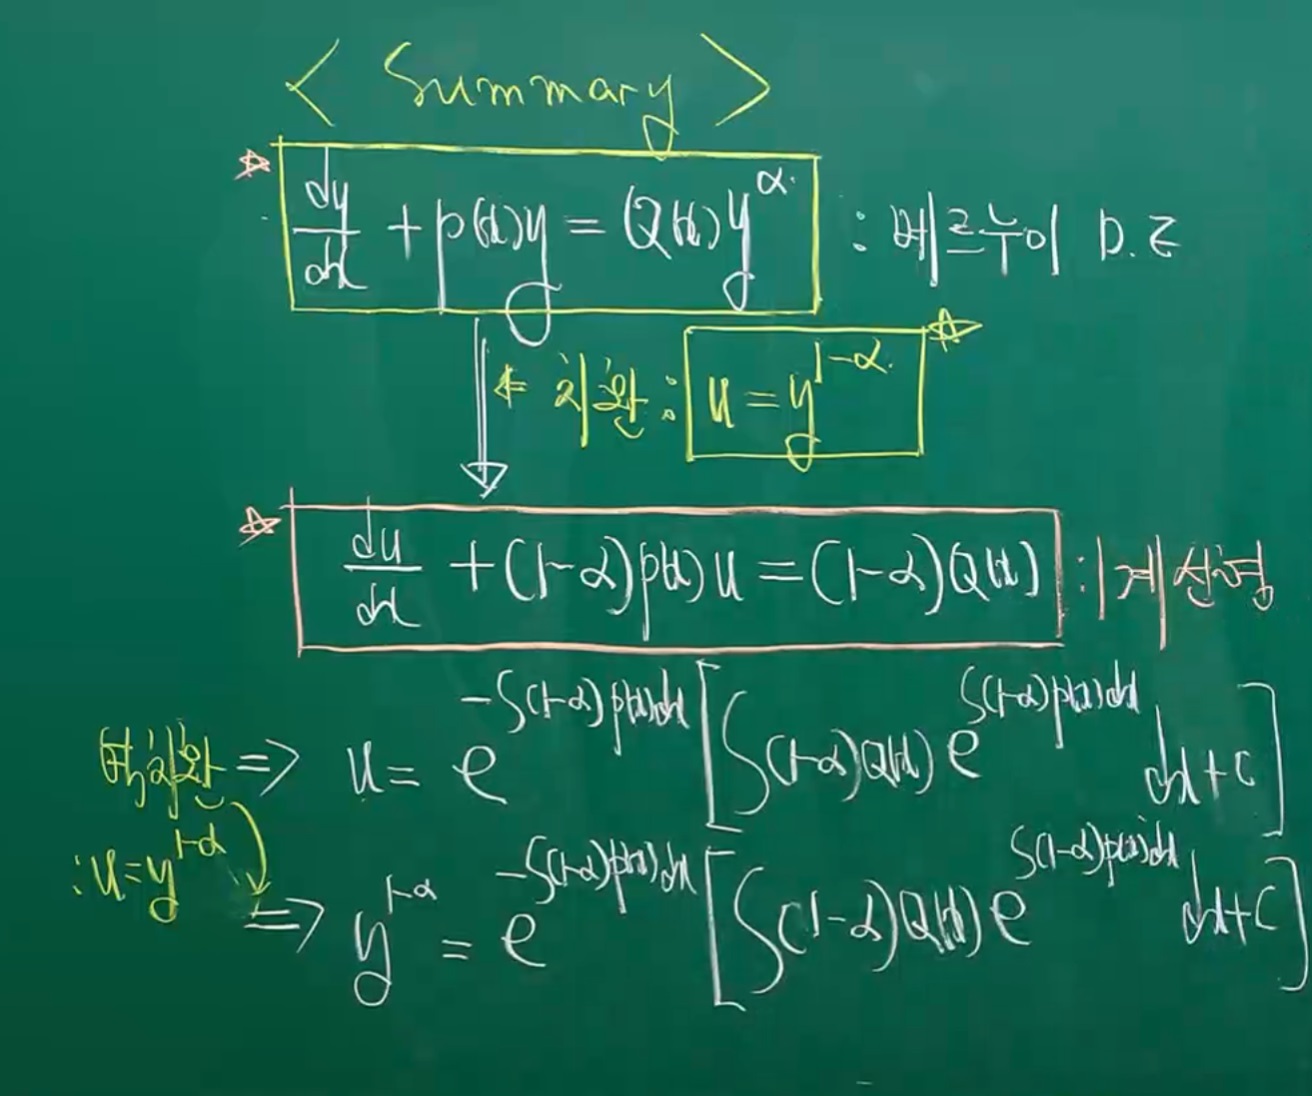 < Summary >
dy/dx + p(x)y = Q(x)y^α : 베르누이 D.E
← 치환 : u = y^(1-α)
du/dx + (1-α)p(x)u = (1-α)Q(x) : 1계 선형
역치환 => u = e^(-∫(1-α)p(x)dx) [∫(1-α)Q(x) e^(∫(1-α)p(x)dx) dx + C]
: u = y^(1-α)
=> y^(1-α) = e^(-∫(1-α)p(x)dx) [∫(1-α)Q(x) e^(∫(1-α)p(x)dx) dx + C]